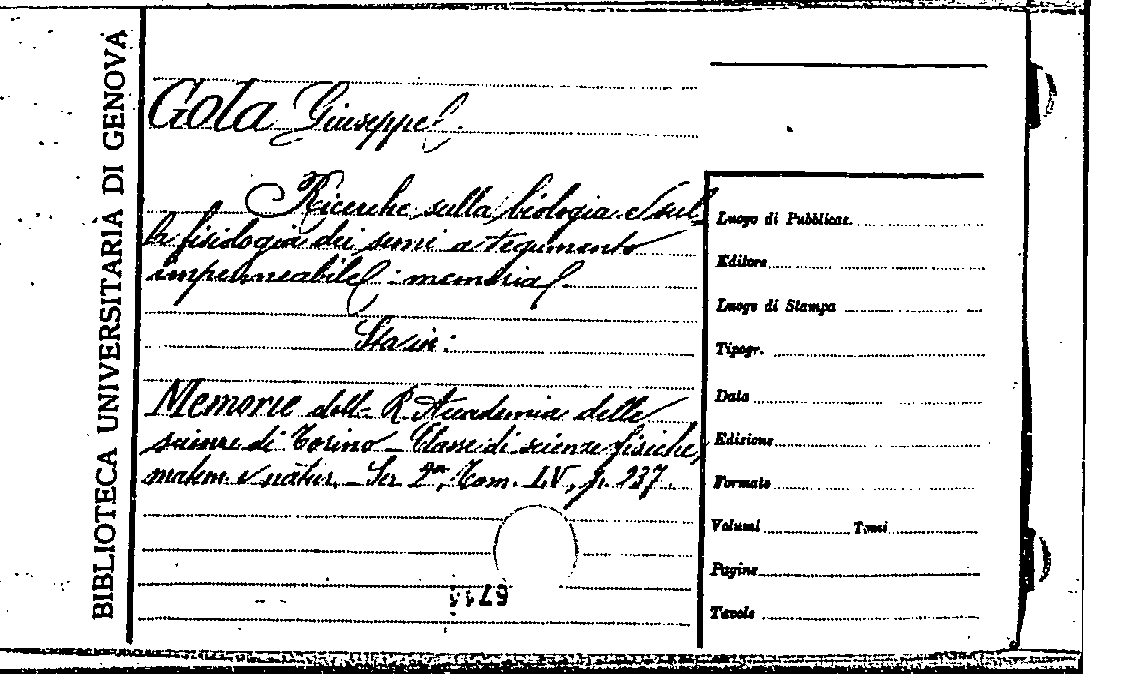 BIBLIOTECA UNIVERSITARIA DI GENOVA
Gola Giuseppe.
Ricerche sulla biologia e sul
la fisiologia dei semi a tegumento
impermeabile : memoria.
Sta in:
Memorie della R. Accademia delle
scienze di Torino - Classe di scienze fisiche,
matem. e natur. - Ser. 2ª, Tom. LV, p. 237.
6714
Luogo di Pubblicaz.
Editore
Luogo di Stampa
Tipogr.
Data
Edizione
Formato
Volumi Tomi
Pagine
Tavole